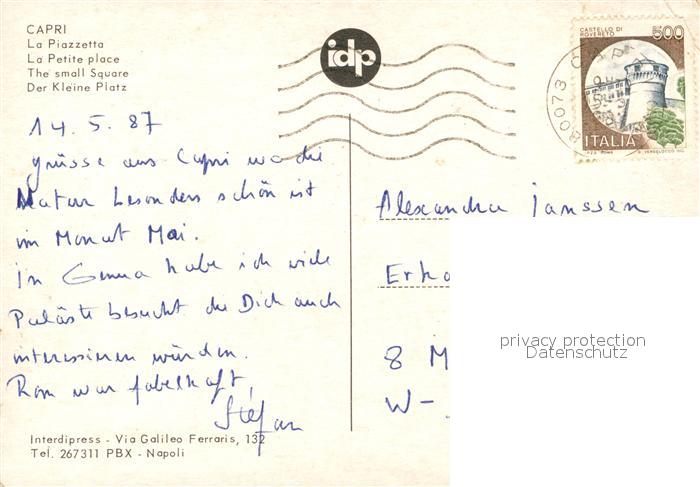 CAPRI
La Piazzetta
La Petite place
The small Square
Der Kleine Platz
idp
CASTELLO DI
ROVERETO
500
ITALIA
80073
14.5.87
Grüsse aus Capri wo die
Natur besonders schön ist
im Monat Mai.
In Genua habe ich viele
Paläste besucht die Dich auch
interessieren würden.
Rom war fabelhaft,
Stefan
Alexandra Janssen
8 M
W-
privacy protection
Datenschutz
Interdipress - Via Galileo Ferraris, 132
Tel. 267311 PBX - Napoli